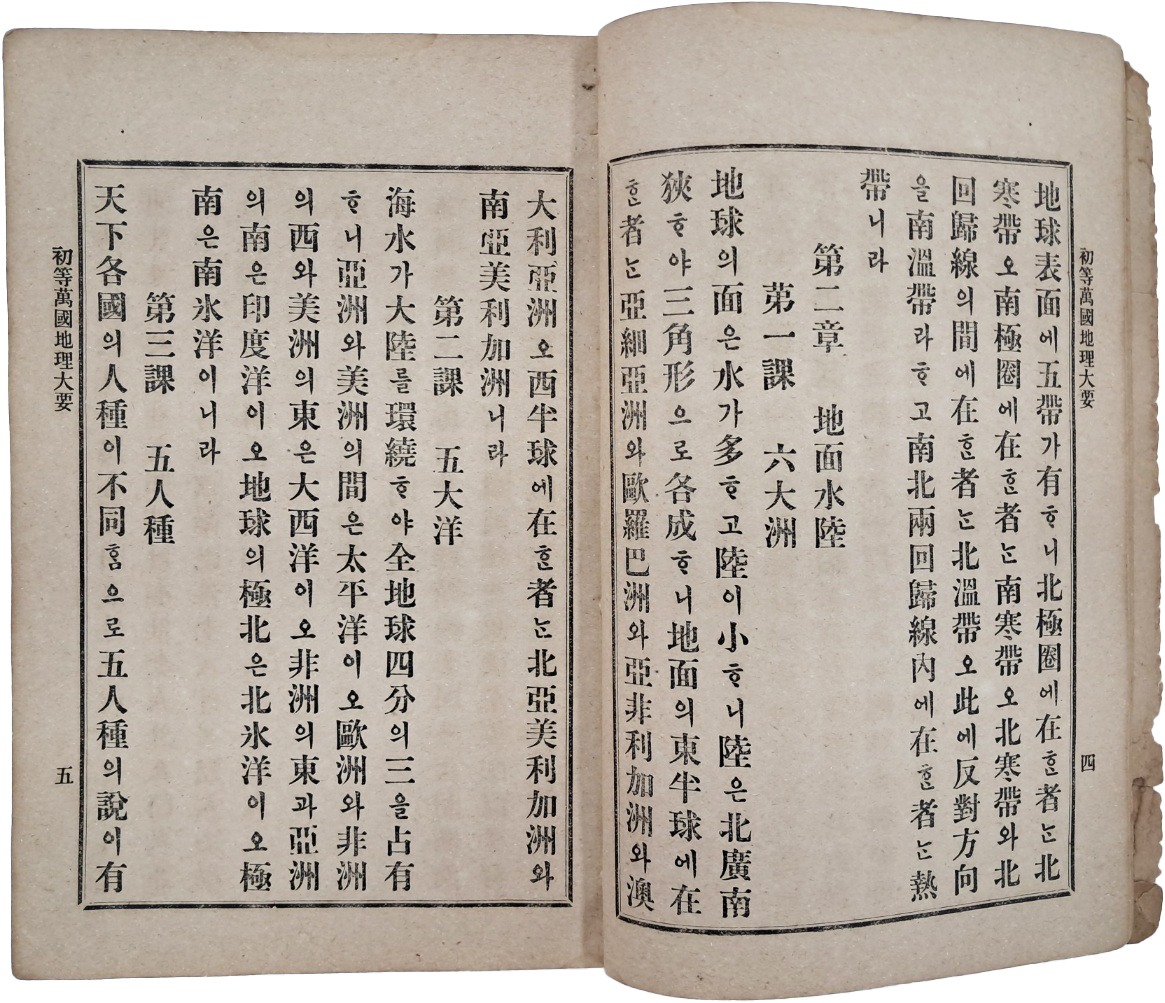 初等萬國地理大要 四
地球表面에五帶가有ᄒᆞ니北極圈에在ᄒᆞᆫ者ᄂᆞᆫ北
寒帶오南極圈에在ᄒᆞᆫ者ᄂᆞᆫ南寒帶오北寒帶와北
回歸線의間에在ᄒᆞᆫ者ᄂᆞᆫ北溫帶오此에反對方向
을南溫帶라ᄒᆞ고南北兩回歸線內에在ᄒᆞᆫ者ᄂᆞᆫ熱
帶니라
第二章 地面水陸
第一課 六大洲
地球의面은水가多ᄒᆞ고陸이小ᄒᆞ니陸은北廣南
狹ᄒᆞ야三角形으로各成ᄒᆞ니地面의東半球에在
ᄒᆞᆫ者ᄂᆞᆫ亞細亞洲와歐羅巴洲와亞非利加洲와澳
大利亞洲오西半球에在ᄒᆞᆫ者ᄂᆞᆫ北亞美利加洲와
南亞美利加洲니라
第二課 五大洋
海水가大陸를環繞ᄒᆞ야全地球四分의三을占有
ᄒᆞ니亞洲와美洲의間은太平洋이오歐洲와非洲
의西와美洲의東은大西洋이오非洲의東과亞洲
의南은印度洋이오地球의極北은北氷洋이오極
南은南氷洋이니라
第三課 五人種
天下各國의人種이不同ᄒᆞᆷ으로五人種의說이有
初等萬國地理大要 五